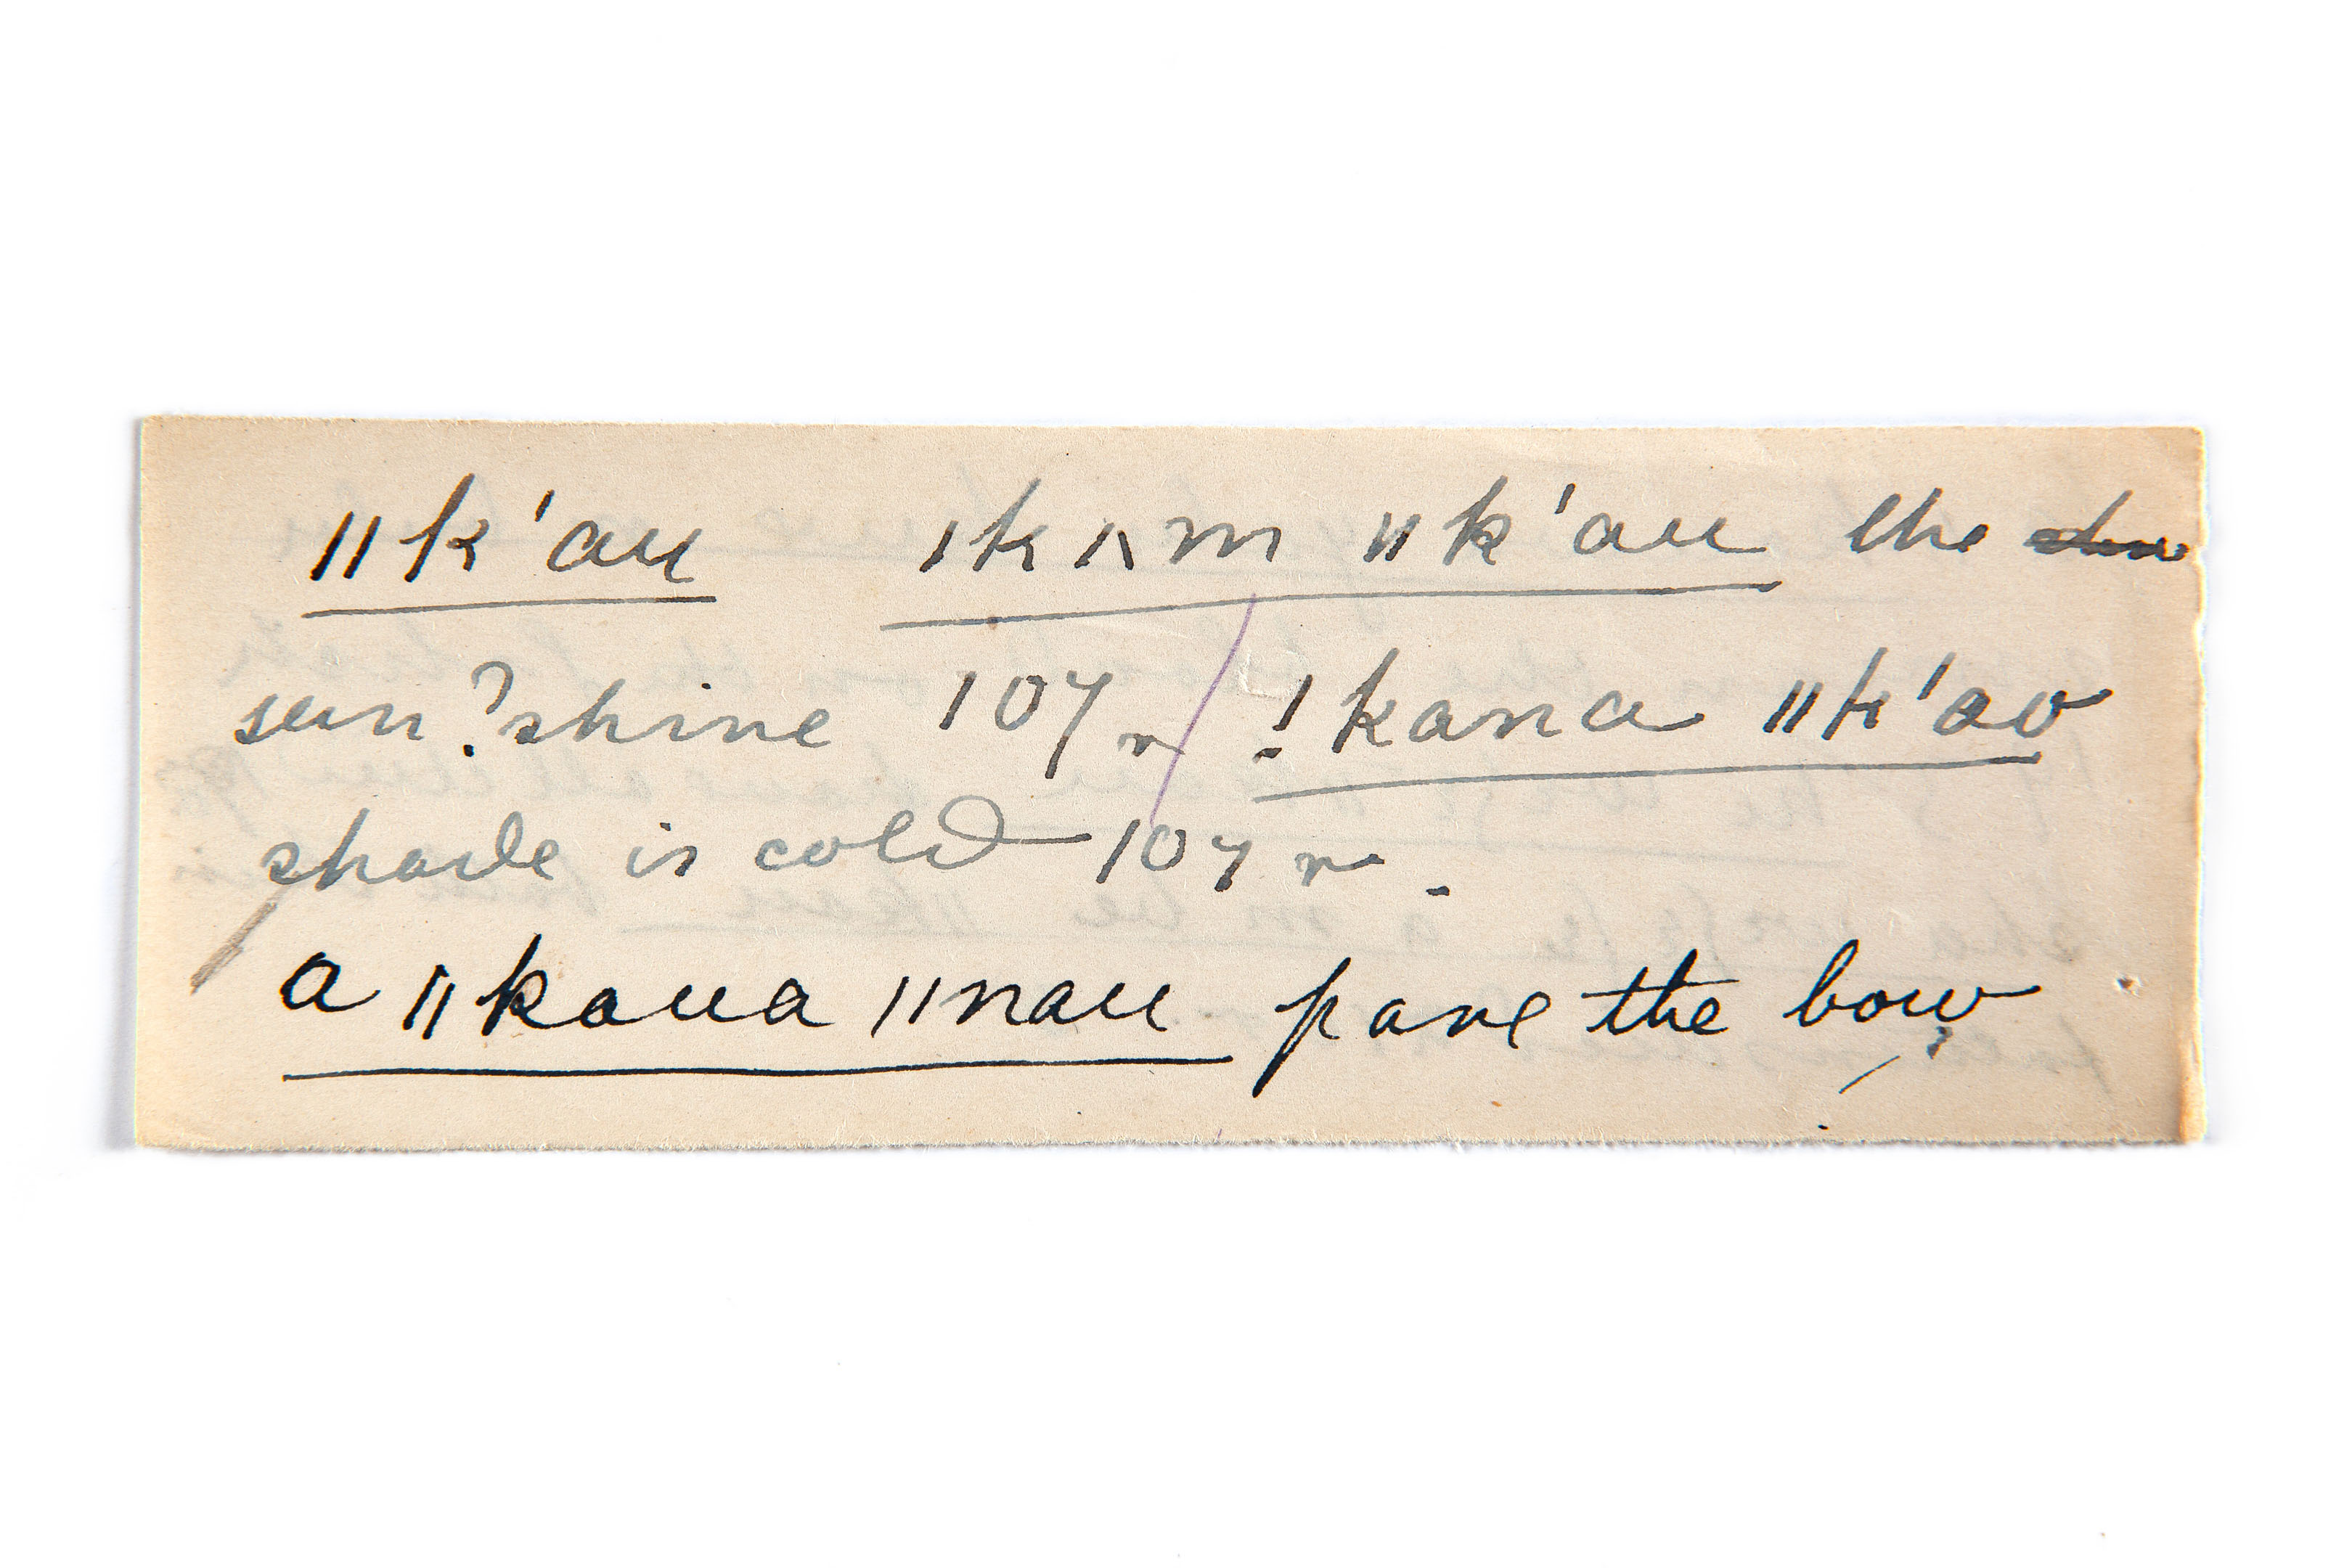 ǁk'au ǀkʌm ǁk'au the
sun? shine 107 r / !kana ǁk'ao
shade is cold 107 r.
a ǁkaua ǁnau pare the bow